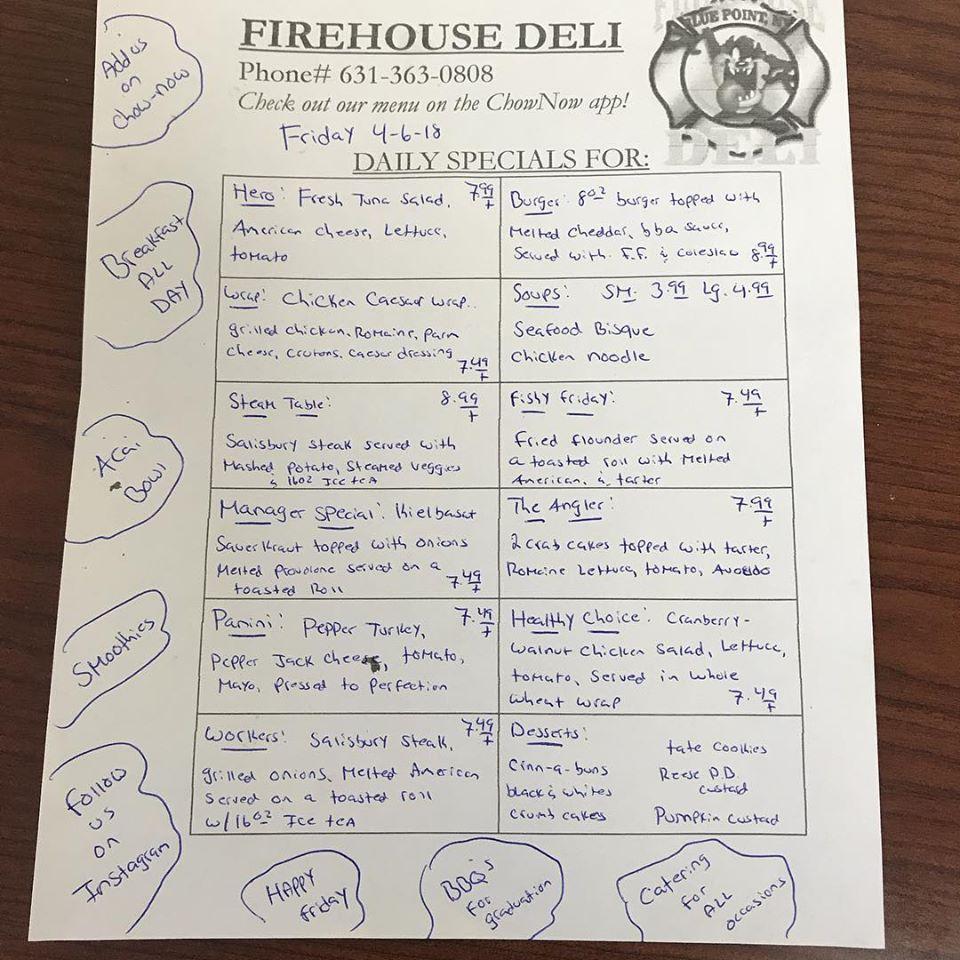 FIREHOUSE DELI
Phone# 631-363-0808
Check out our menu on the ChowNow app!
BLUE POINT, NY
DELI
Friday 4-6-18
DAILY SPECIALS FOR:
Add us
on
Chow-now
Breakfast
ALL
DAY
Acai
Bowl
Smoothies
Follow
us
on
Instagram
Hero: Fresh Tuna Salad, 7.99 +
American cheese, Lettuce,
tomato
Burger: 8oz burger topped with
Melted Cheddar, bbq sauce,
Served with F.F. & coleslaw 8.99 +
Wrap: Chicken Caesar wrap..
grilled chicken, Romaine, parm
cheese, crutons, caesar dressing
7.49 +
Soups: SM. 3.99 Lg. 4.99
Seafood Bisque
Chicken noodle
Steam Table: 8.99 +
Salisbury steak served with
Mashed potato, steamed veggies
& 16oz Ice teA
Fishy Friday: 7.49 +
Fried flounder served on
a toasted roll with Melted
American, & tarter
Manager Special: Kielbasa
Sauerkraut topped with onions
Melted provolone served on a
toasted Roll 7.49 +
The Angler: 7.99 +
2 crab cakes topped with tarter,
Romaine Lettuce, tomato, Avocado
Panini: Pepper Turkey, 7.49 +
Pepper Jack cheese, tomato,
Mayo, pressed to perfection
Healthy Choice: Cranberry-
walnut chicken salad, Lettuce,
tomato, served in whole
wheat wrap 7.49 +
Workers: Salisbury Steak, 7.49 +
grilled onions, Melted American
Served on a toasted roll
w/16oz Ice teA
Desserts:
Cinn-a-buns
black & whites
crumb cakes
tate cookies
Reese P.B.
custard
Pumpkin custard
HAPPY
Friday
BBQ's
For
graduation
Catering
For
ALL
occasions